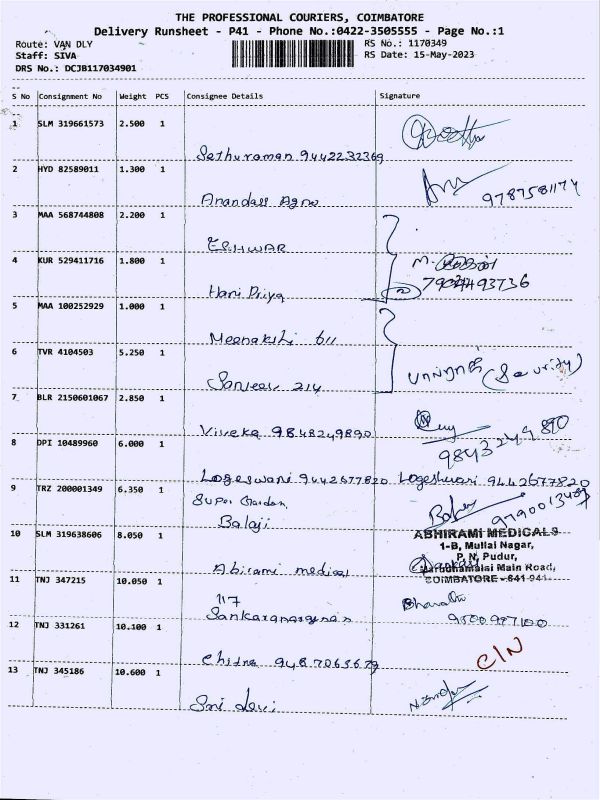 THE PROFESSIONAL COURIERS, COIMBATORE
Delivery Runsheet - P41 - Phone No.:0422-3505555 - Page No.:1
Route: VAN DLY RS No.: 1170349
Staff: SIVA RS Date: 15-May-2023
DRS No.: DCJB117034901
S No Consignment No Weight PCS Consignee Details Signature
1 SLM 319661573 2.500 1
Sethuraman 9442232369
2 HYD 82589011 1.300 1
Anandass Agro 9787581174
3 MAA 568744808 2.200 1
ESHWAR
4 KUR 529411716 1.800 1
Hari Priya
5 MAA 100252929 1.000 1
Meenakshi 611
6 TVR 4104503 5.250 1
Sanjeev 214 (Security)
7 BLR 2150601067 2.850 1
Viveka 9843249890 9843249890
8 DPI 10489960 6.000 1
Logeswari 9442677820 Logeshwari 9442677820
9 TRZ 200001349 6.350 1
Super Garden
Balaji
10 SLM 319638606 8.050 1
Abirami medical
ABHIRAMI MEDICALS
1-B, Mullai Nagar,
P. N. Pudur,
Marudhamalai Main Road,
COIMBATORE - 641 041.
11 TNJ 347215 10.050 1
117
Sankaranarayanan
12 TNJ 331261 10.100 1
Chitra C/N
13 TNJ 345186 10.600 1
Sri devi